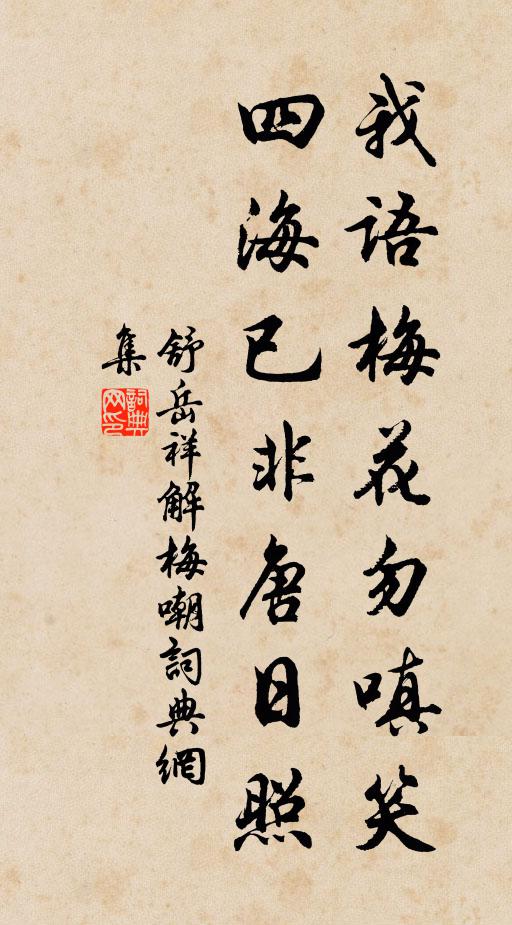 我語梅花勿嗔笑
四海已非唐日照
舒岳祥解梅嘲詞典網
集
詞典网印